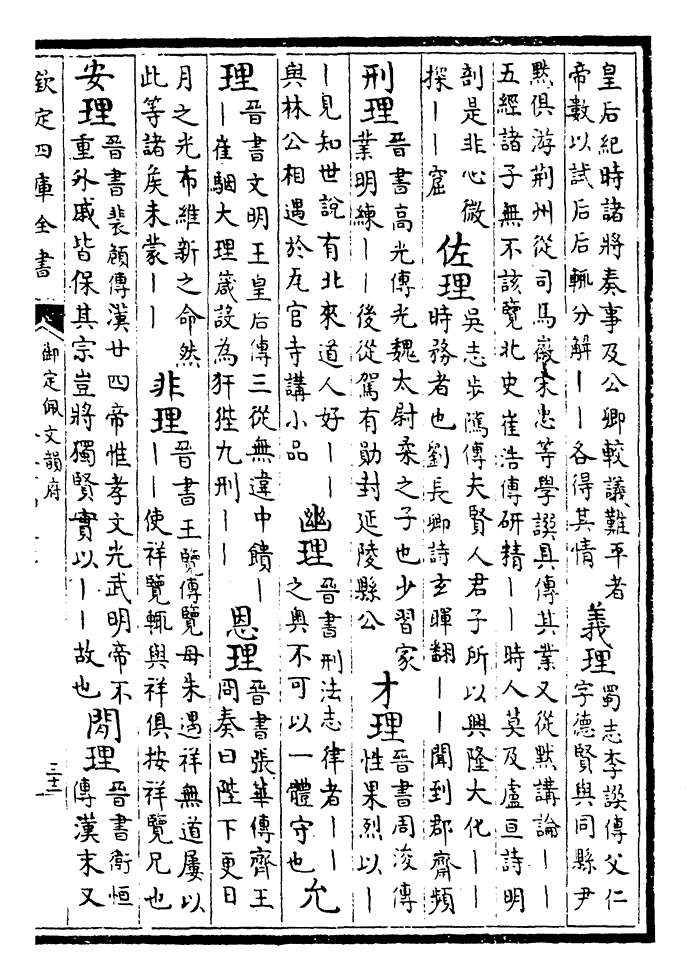 皇后紀時諸將奏事及公卿較議難平者
帝數以試后后輒分解丨丨各得其情
義理
蜀志李譔傳父仁
字德賢與同縣尹
黙俱游荆州從司馬徽宋忠等學譔具傳其業又從黙講論丨丨
五經諸子無不該覽北史崔浩傳研精丨丨時人莫及盧亘詩明
剖是非心微
探丨丨窟
佐理
吳志步隲傳夫賢人君子所以興隆大化丨丨
時務者也劉長卿詩玄暉翻丨丨聞到郡齋頻
刑理
晉書高光傳光魏太尉柔之子也少習家
業明練丨丨後從駕有勛封延陵縣公
才理
晉書周浚傳
性果烈以丨
丨見知世說有北來道人好丨丨
與林公相遇於瓦官寺講小品
幽理
晉書刑法志律者丨丨
之奥不可以一體守也
允
理
晉書文明王皇后傳三從無違中饋丨
丨崔駰大理箴設為犴狴九刑丨丨
恩理
晉書張華傳齊王
冏奏曰陛下更日
月之光布維新之命然
此等諸矦未蒙丨丨
非理
晉書王覽傳覽母朱遇祥無道屢以
丨丨使祥覽輒與祥俱按祥覽兄也
安理
晉書裴頠傳漢廿四帝惟孝文光武明帝不
重外戚皆保其宗豈將獨賢實以丨丨故也
閒理
晉書衛恒
傳漢末又
欽定四庫全書
御定佩文韻府